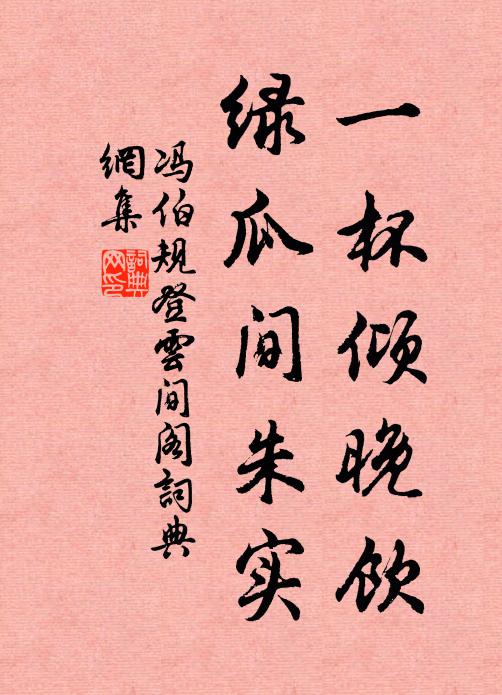 一杯倾晚饮
绿瓜间朱实
冯伯规登雲间阁詞典
網集
詞典网印